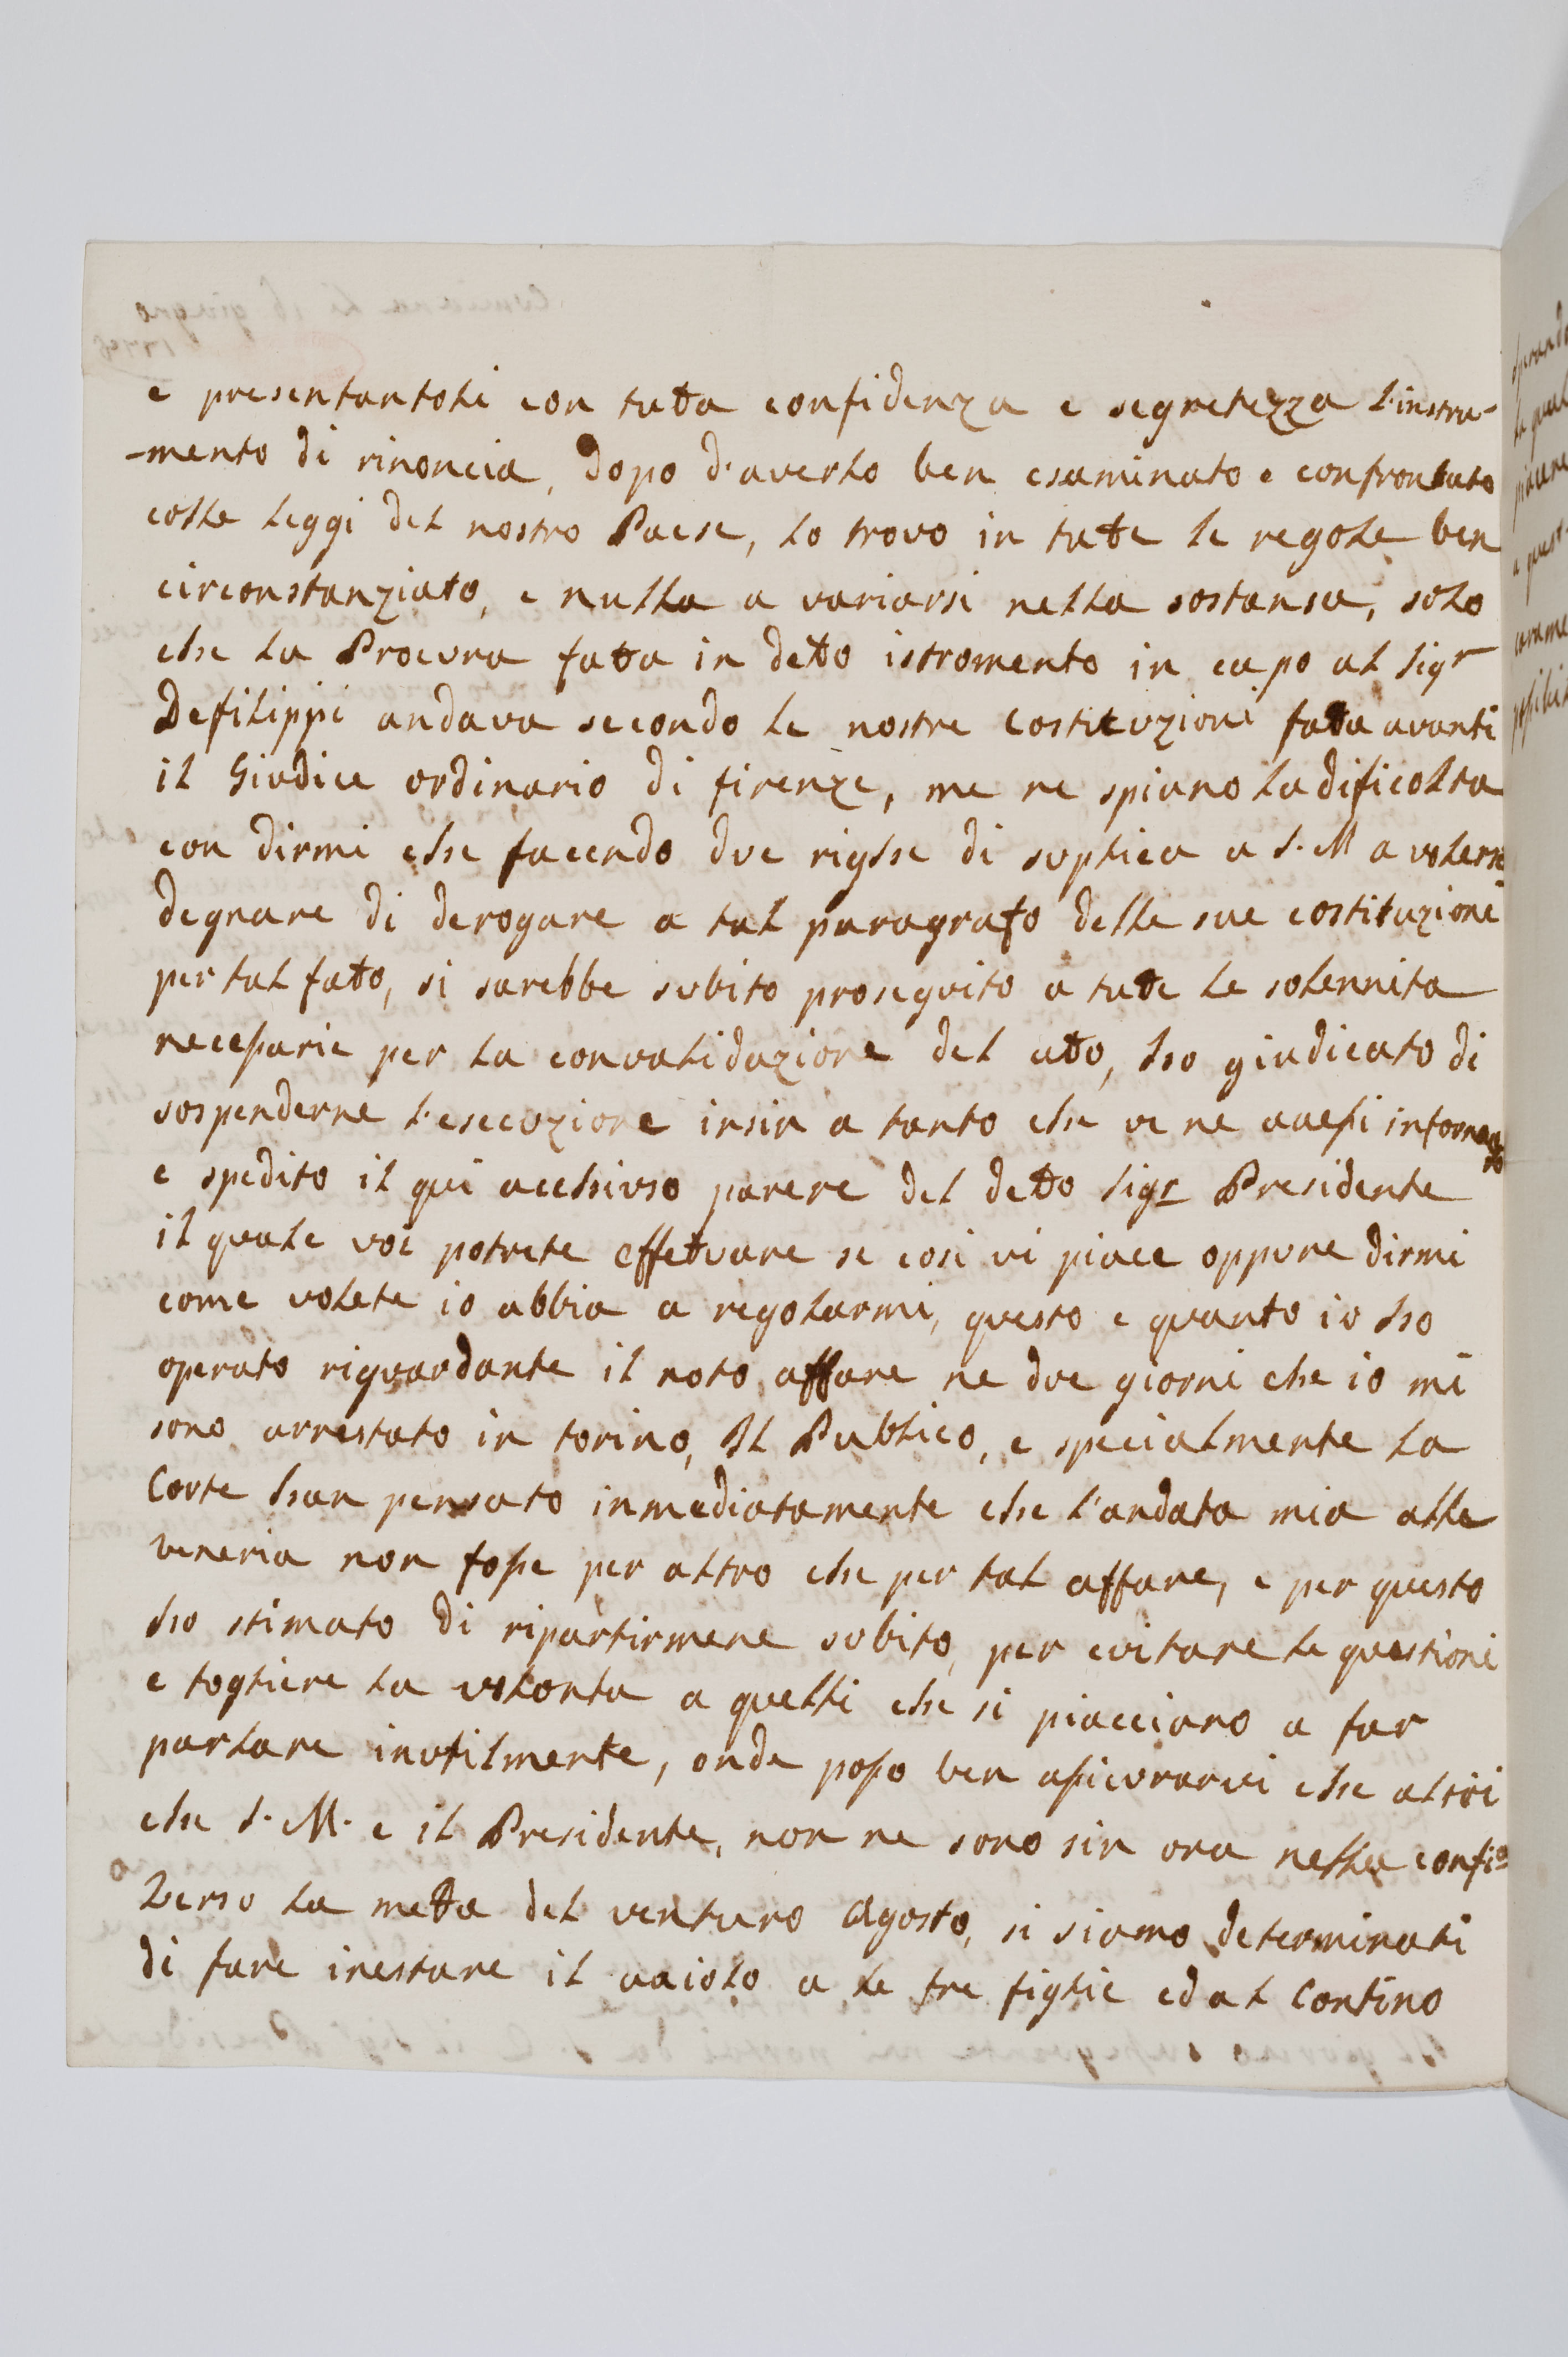 e presentantoli con tutta confidenza e segretezza l'instru-
-mento di rinoncia, dopo d'averlo ben esaminato e confrontato
colle leggi del nostro Paese, lo trovo in tutte le regole ben
circonstanziato, e nulla a variarsi nella sostansa, solo
che la Procura fatta in detto istromento in capo al Sigr
Defilippi andava secondo le nostre Costituzioni fatta avanti
il Giudice ordinario di firenze, me ne spiano la dificolta
con dirmi che facendo due righe di suplica a S. M a volersi
degnare di derogare a tal paragrafo delle sue costituzioni
per tal fatto, si sarebbe subito proseguito a tutte le solennita
necessarie per la convalidazione del atto, ho giudicato di
sospenderne l'esecuzione insin a tanto che ve ne avessi informato
e spedito il qui acchiuso parere del detto Sigr Presidente
il quale voi potrete effettuare se cosi vi piace oppure dirmi
come volete io abbia a regolarmi, questo e quanto io ho
operato riguardante il noto affare ne due giorni che io mi
sono arrestato in torino, Il Publico, e specialmente la
Corte han pensato inmediatamente che l'andata mia alla
Veneria non fosse per altro che per tal affare, e per questo
ho stimato di ripartirmene subito, per evitare le questioni
e togliere la volonta a quelli che si piacciano a far
parlare inutilmente, onde posso ben assicurarvi che altri
che S. M. e il Presidente, non ne sono sin ora nella confi.a
Verso la metta del venturo Agosto, si siamo determinati
di fare inestare il vaiolo a le tre figlie ed al Contino